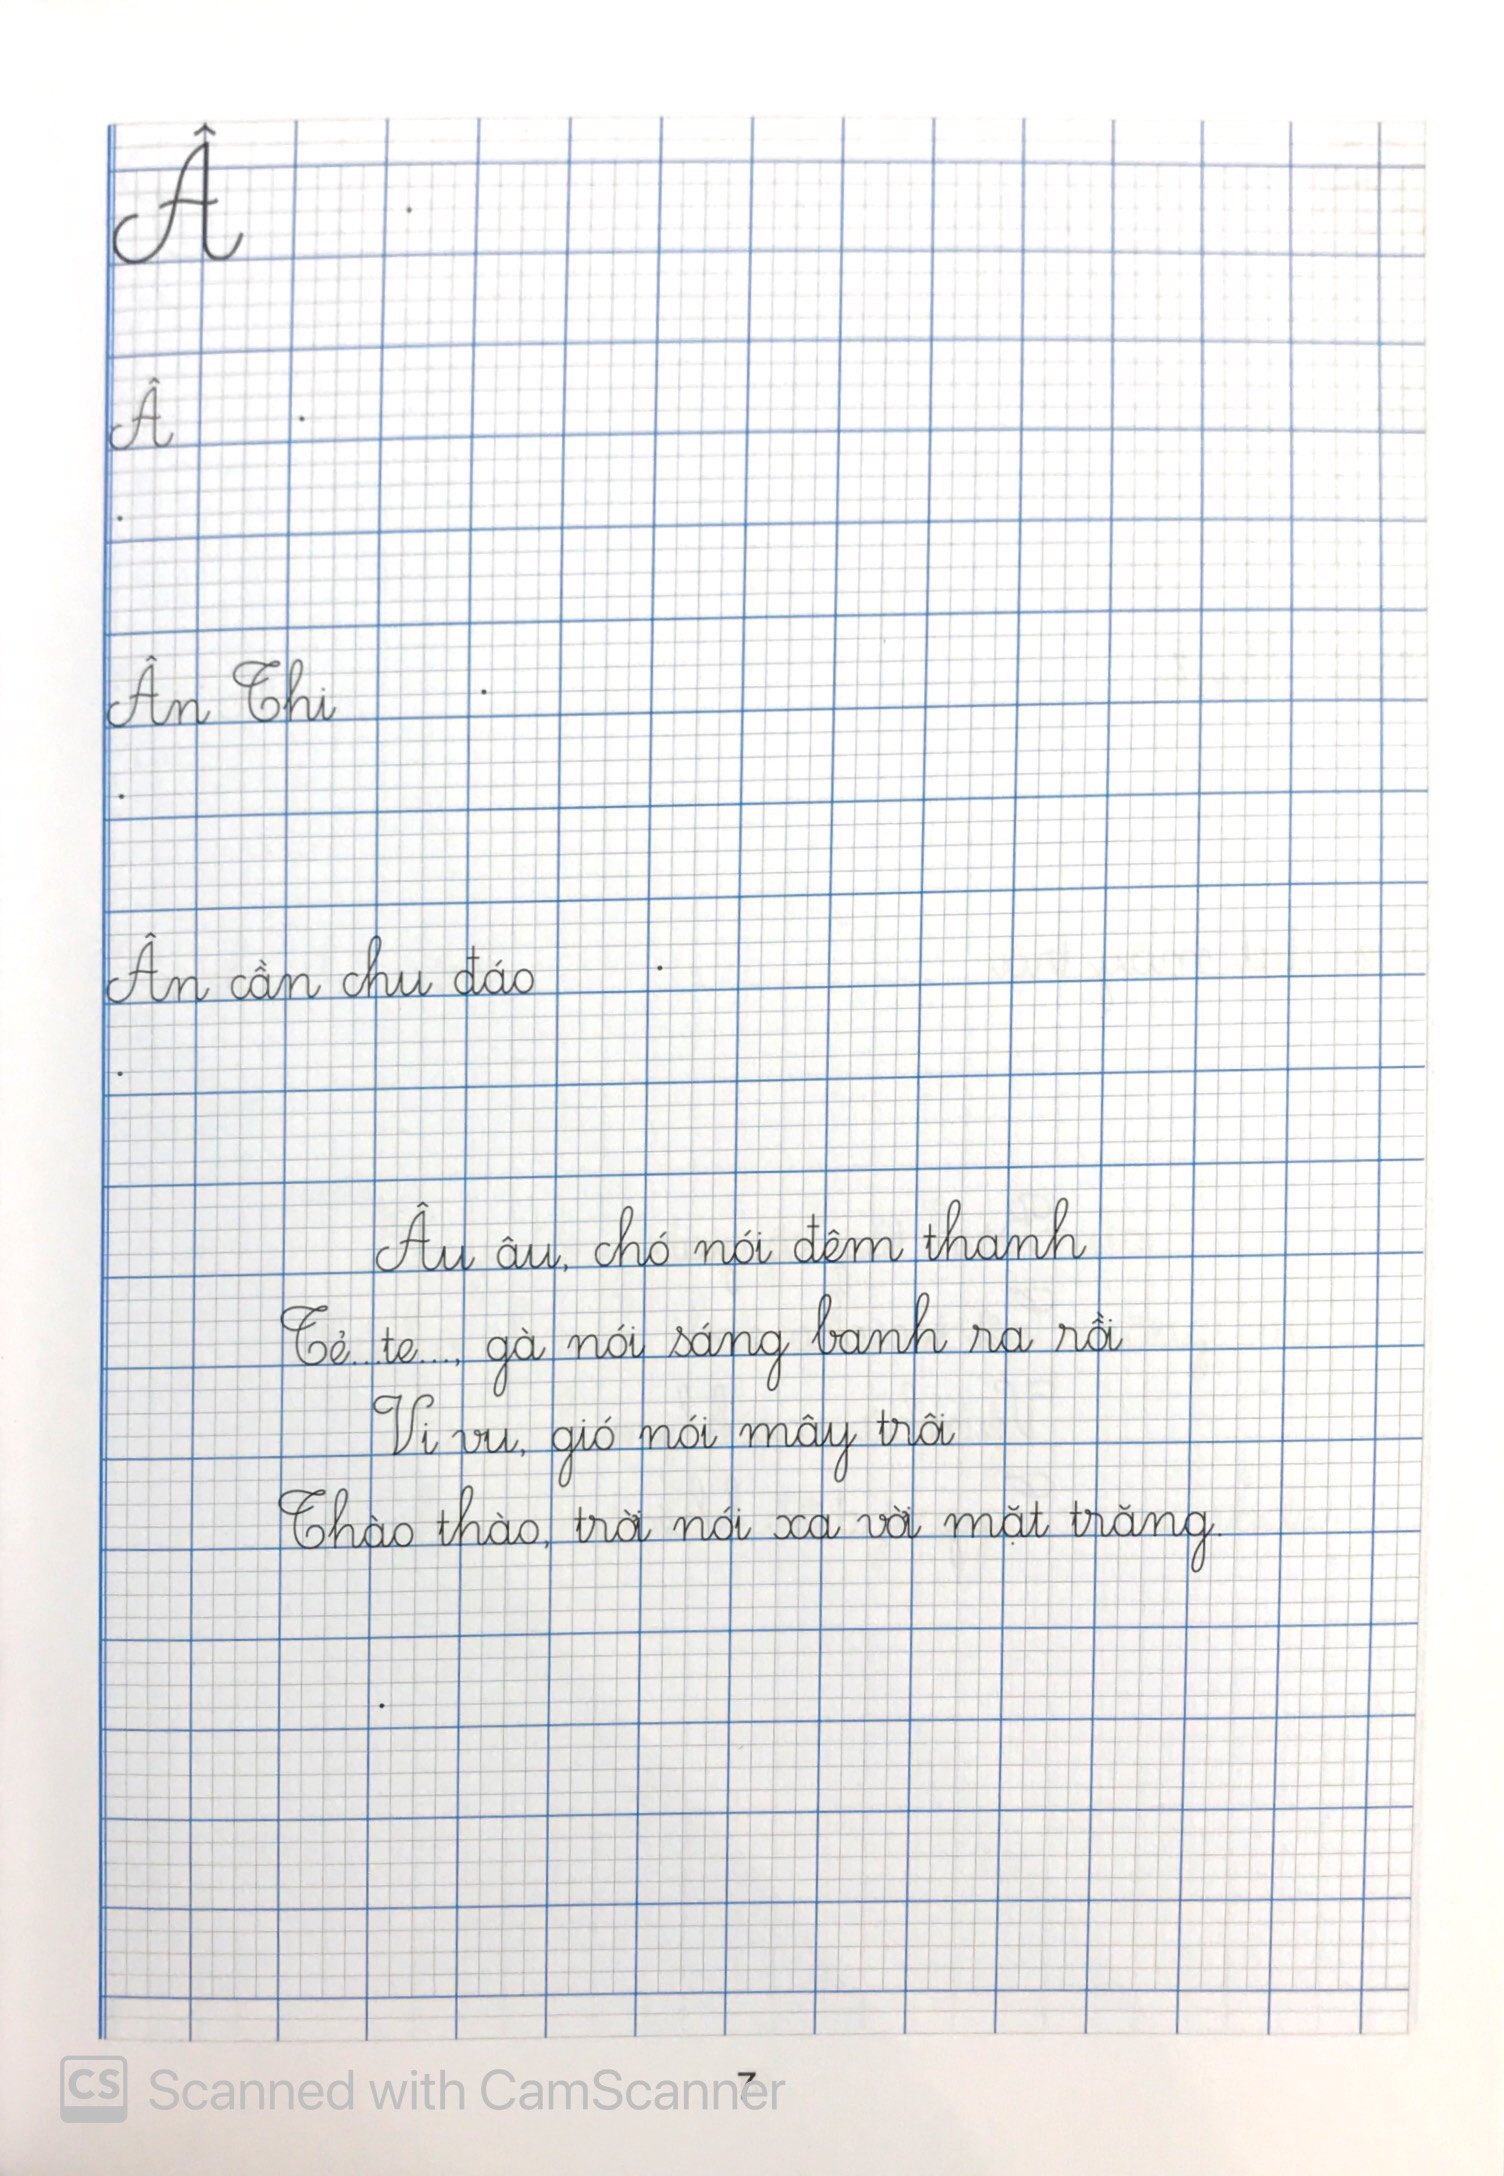 Â
Â
Ân Thi
Ân cần chu đáo
Âu âu, chó nói đêm thanh
Tẻ...te..., gà nói sáng banh ra rồi
Vi vu, gió nói mây trôi
Thào thào, trời nói xa vời mặt trăng.
7
CS Scanned with CamScanner